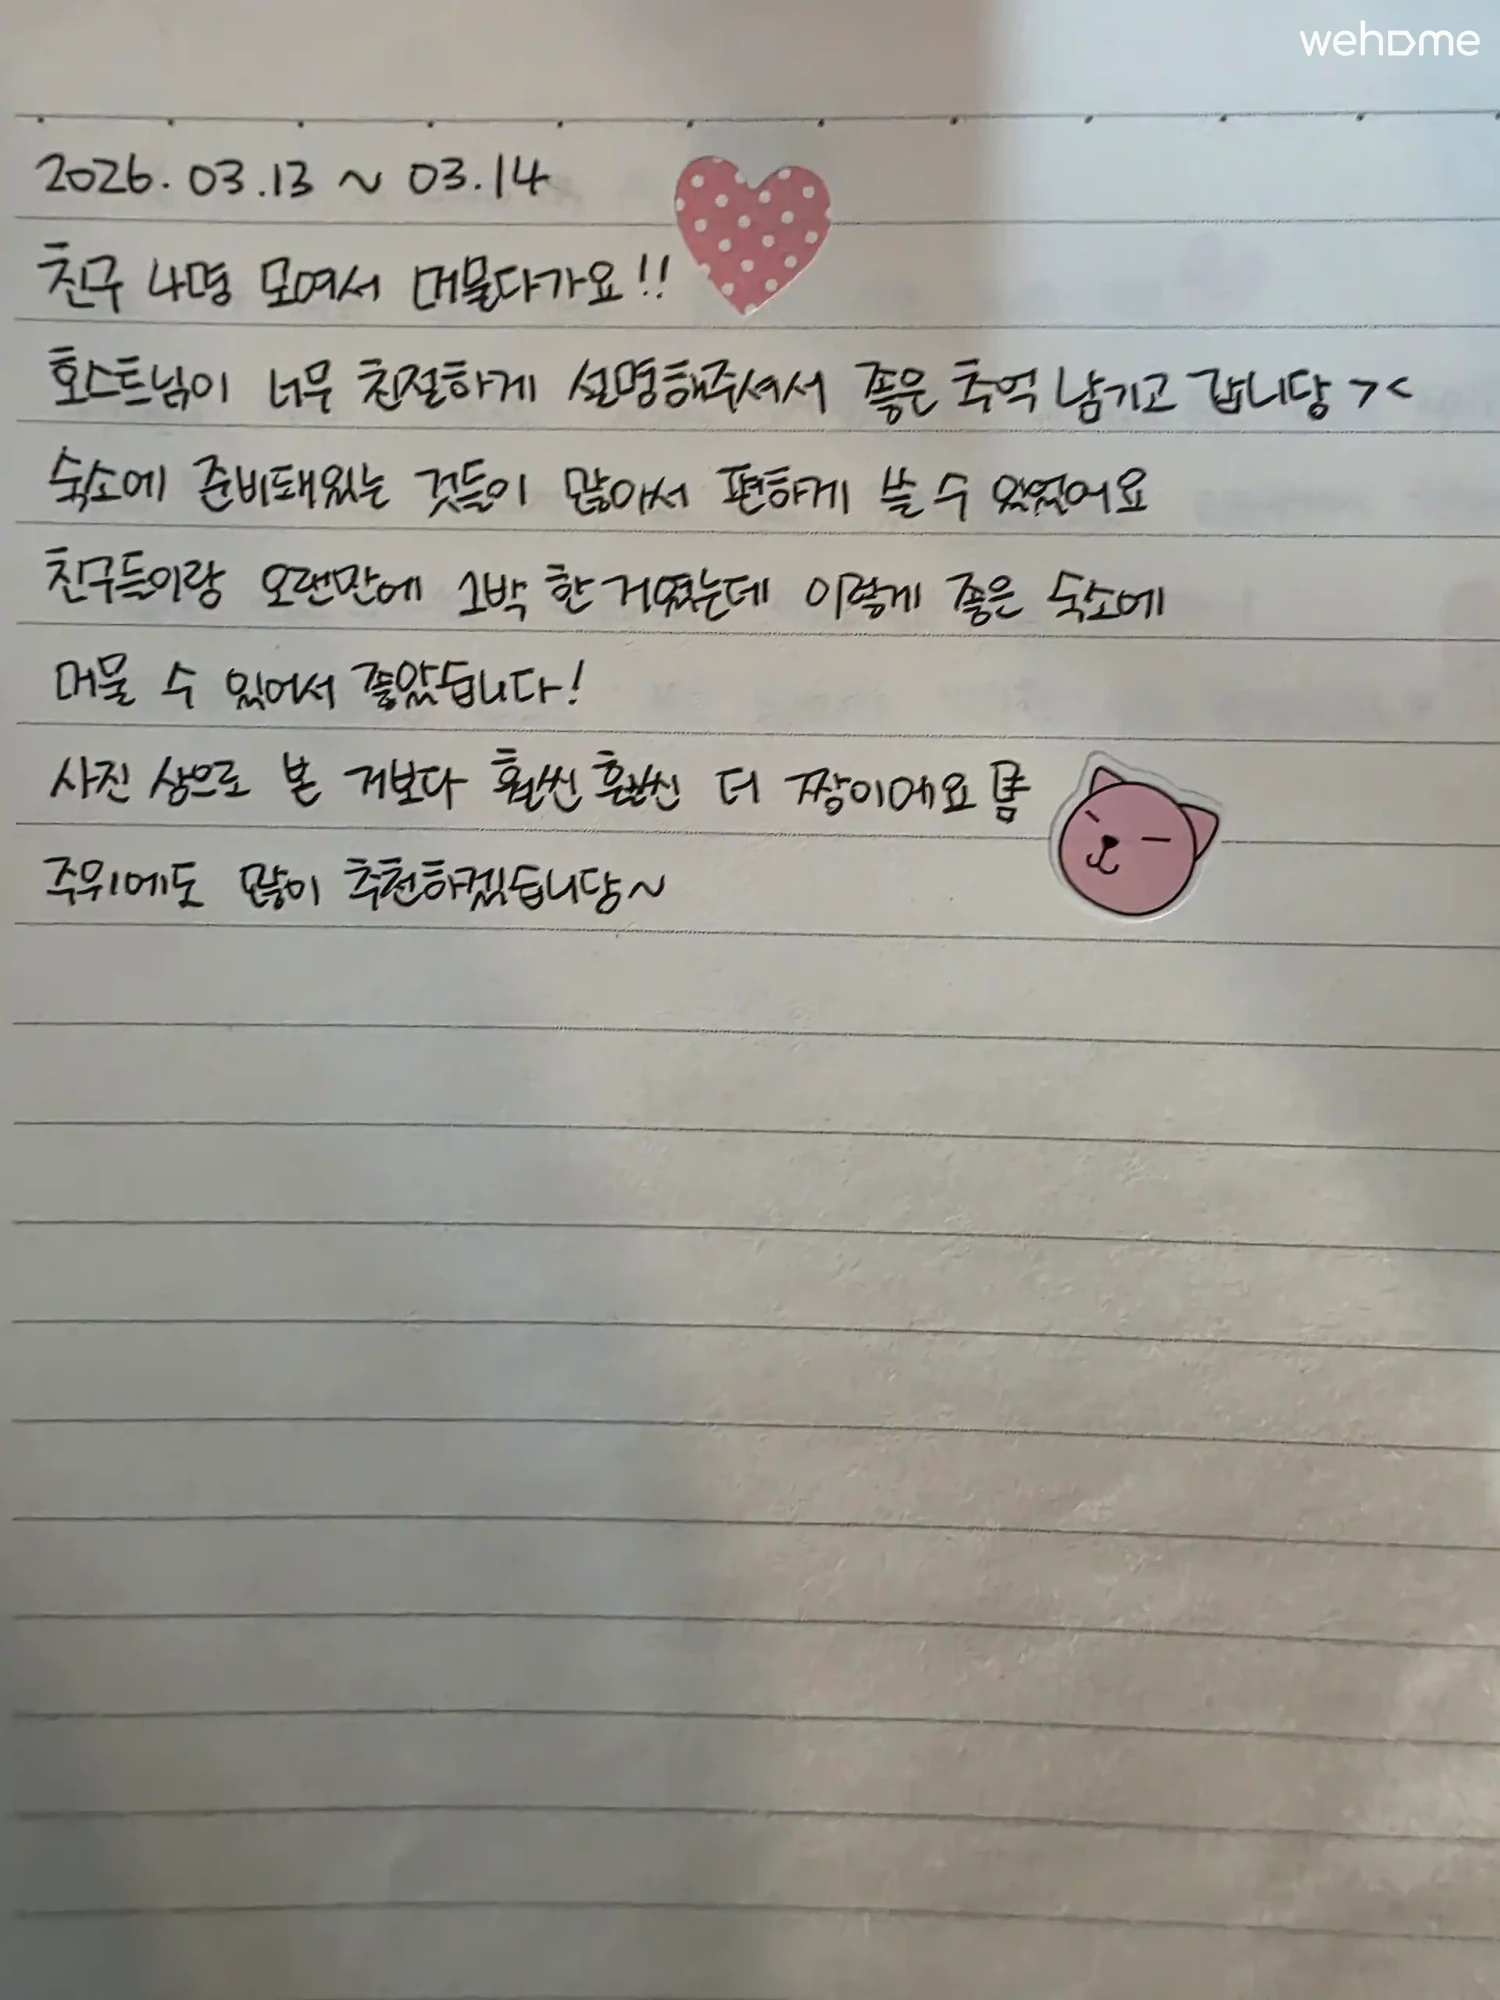 wehome
2026. 03.13 ~ 03.14
친구 4명 모여서 머물다가요!!
호스트님이 너무 친절하게 설명해주셔서 좋은 추억 남기고 갑니당 ><
숙소에 준비돼있는 것들이 많아서 편하게 쓸 수 있었어요
친구들이랑 오랜만에 1박 한 거였는데 이렇게 좋은 숙소에
머물 수 있어서 좋았습니다!
사진 상으로 본 거보다 훨씬 훨씬 더 짱이에요
주위에도 많이 추천하겠습니당~